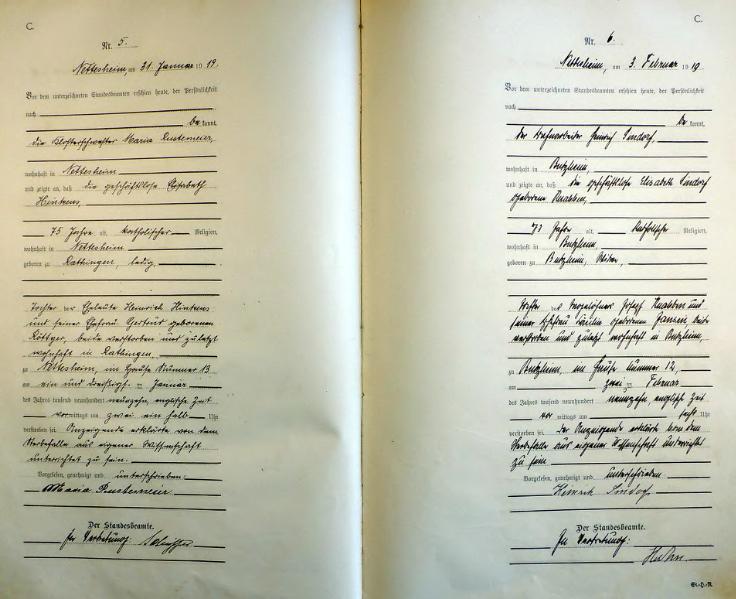 C.
Nr. 5.
Nettesheim, am 31. Januar 1919.
Vor dem unterzeichneten Standesbeamten erschien heute, der Persönlichkeit
nach
bekannt,
die Klosterschwester Maria
wohnhaft in Nettesheim
und zeigte an, daß die geschäftslose Elisabeth
Hintzens,
75 Jahre alt, katholischer Religion,
wohnhaft in Nettesheim
geboren zu Rathingen, ledig,
Tochter der Eheleute Heinrich Hintzens
und seiner Ehefrau Gertrud geborenen
Röttger, beide verstorben und zuletzt
wohnhaft in Rathingen,
zu Nettesheim, im Hause Nummer 13
am ein und dreißigsten Januar
des Jahres tausend neunhundert neunzehn, englische Zeit
vormittags um zwei ein halb Uhr
verstorben sei. Anzeigende erklärte von dem
Sterbefalle aus eigener Wissenschaft
unterrichtet zu sein.
Vorgelesen, genehmigt und unterschrieben
Maria
Der Standesbeamte.
In Vertretung:
C.
Nr. 6.
Nettesheim, am 3. Februar 1919
Vor dem unterzeichneten Standesbeamten erschien heute, der Persönlichkeit
nach
bekannt,
der Heinrich Lindorf,
wohnhaft in Butzheim,
und zeigte an, daß die geschäftslose Elisabeth Lindorf
geborenen
73 Jahre alt, katholischer Religion,
wohnhaft in Butzheim,
geboren zu Butzheim, Witwe,
Tochter des Joseph und
seiner Ehefrau Cäcilia geborenen Jansen beide
verstorben und zuletzt wohnhaft in Butzheim,
zu Butzheim, im Hause Nummer 12,
am zwei Februar
des Jahres tausend neunhundert neunzehn, englische Zeit
vor mittags um sechs Uhr
verstorben sei. Der Anzeigende erklärte von dem
Sterbefalle aus eigener Wissenschaft unterrichtet
zu sein
Vorgelesen, genehmigt und unterschrieben
Heinrich Lindorf
Der Standesbeamte.
In Vertretung: